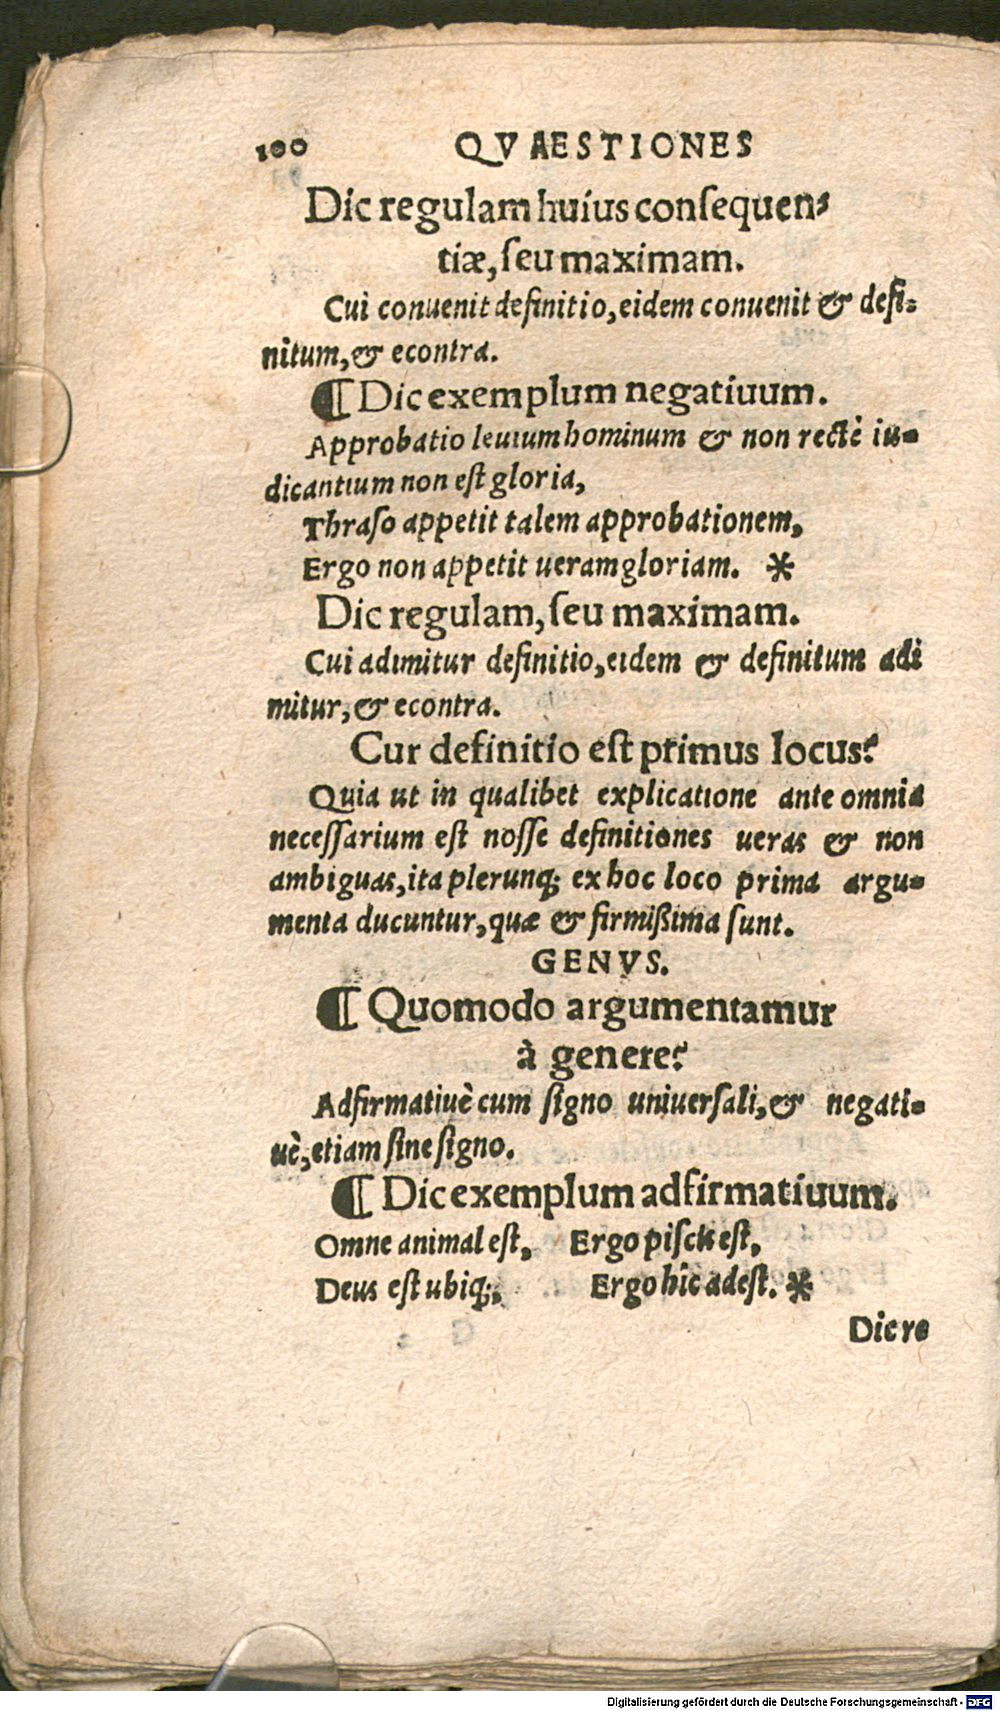 100 QVAESTIONES
Dic regulam huius conſequen⸗
tiæ, ſeu maximam.
Cui conuenit definitio, eidem conuenit & defi⸗
nitum, & econtra.
¶ Dic exemplum negatiuum.
Approbatio leuium hominum & non rectè iu⸗
dicantium non eſt gloria,
Thraſo appetit talem approbationem,
Ergo non appetit ueram gloriam. *
Dic regulam, ſeu maximam.
Cui adimitur definitio, eidem & definitum adi
mitur, & econtra.
Cur definitio eſt primus locus?
Quia ut in qualibet explicatione ante omnia
neceſſarium eſt noſſe definitiones ueras & non
ambiguas, ita plerunq; ex hoc loco prima argu⸗
menta ducuntur, quæ & firmißima ſunt.
GENVS.
¶ Quomodo argumentamur
à genere?
Adfirmatiuè cum ſigno uniuerſali, & negati⸗
uè, etiam ſine ſigno.
¶ Dic exemplum adfirmatiuum.
Omne animal eſt, Ergo piſcis eſt,
Deus eſt ubiq;, Ergo hîc adest. *
Dic re
Digitalisierung gefördert durch die Deutsche Forschungsgemeinschaft - DFG